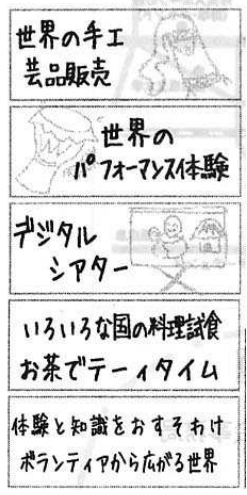 世界の手工
芸品販売
世界の
パフォーマンス体験
デジタル
シアター
いろいろな国の料理試食
お茶でティータイム
体験と知識をおすそわけ
ボランティアから広がる世界